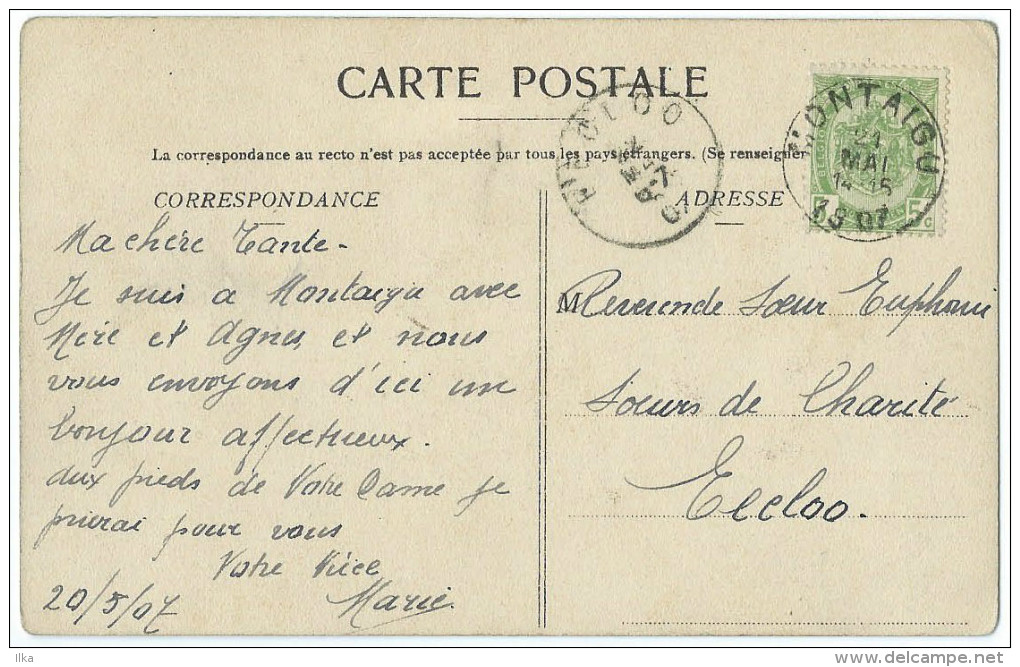 CARTE POSTALE
La correspondance au recto n'est pas acceptée par tous les pays étrangers. (Se renseigner
CORRESPONDANCE
ADRESSE
MONTAIGU
21
MAI
07
Ma chère Tante -
Je suis a Montaigu avec
Mère et Agnes et nous
vous envoyons d'ici un
bonjour affectueux.
aux pieds de Notre Dame je
prierai pour vous
Votre Nièce
Marie.
20/5/07
M Reverende Sœur Euphonie
Sœurs de Charité
Eecloo.
Ilka
http://www.delcampe.net